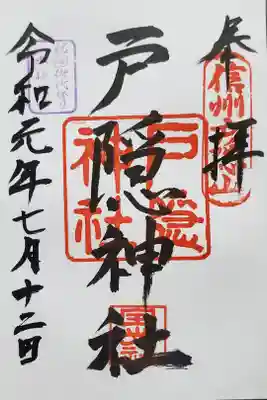 奉拝
信州戸隠山
戸隠神社
戸隠
神社
令和元年七月十二日